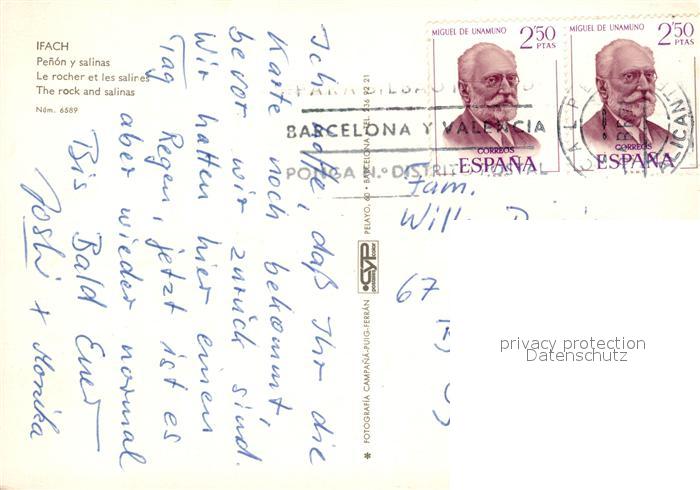 IFACH
Peñón y salinas
Le rocher et les salines
The rock and salinas
Núm. 6589
Ich hoffe, daß Ihr die
Karte noch bekommt,
bevor wir zurück sind.
Wir hatten hier einen
Tag Regen, jetzt ist es
aber wieder normal
Bis Bald Euer
+ Monika
FOTOGRAFÍA CAMPAÑÁ-PUIG-FERRÁN
CYP
PELAYO, 60 • BARCELONA • TEL. 236 92 21
MIGUEL DE UNAMUNO
2'50
PTAS
CORREOS
ESPAÑA
MIGUEL DE UNAMUNO
2'50
PTAS
CORREOS
ESPAÑA
PARA BILBAO
BARCELONA Y VALENCIA
PONGA N.º DISTRITO POSTAL
ALICANTE
Fam.
67
privacy protection
Datenschutz